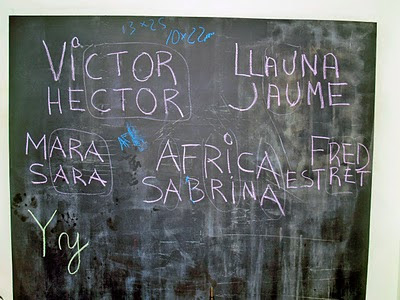 13x25
10x22
a
ViCTOR
HECTOR
LLAUNA
JAUME
MARA
SARA
AFRiCA
SABRINA
FRED
ESTRET
Yy